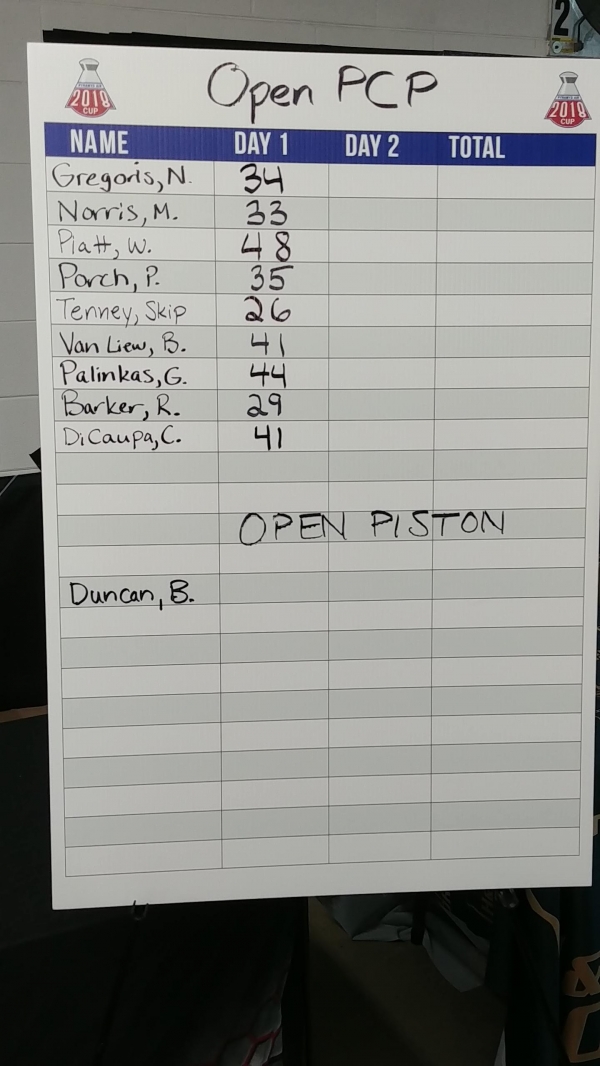 Open PCP
2018
CUP
2018
CUP
NAME DAY 1 DAY 2 TOTAL
Gregoris, N. 34
Norris, M. 33
Piatt, W. 48
Porch, P. 35
Tenney, Skip 26
Van Liew, B. 41
Palinkas, G. 44
Barker, R. 29
DiCaupa, C. 41
OPEN PISTON
Duncan, B.
2